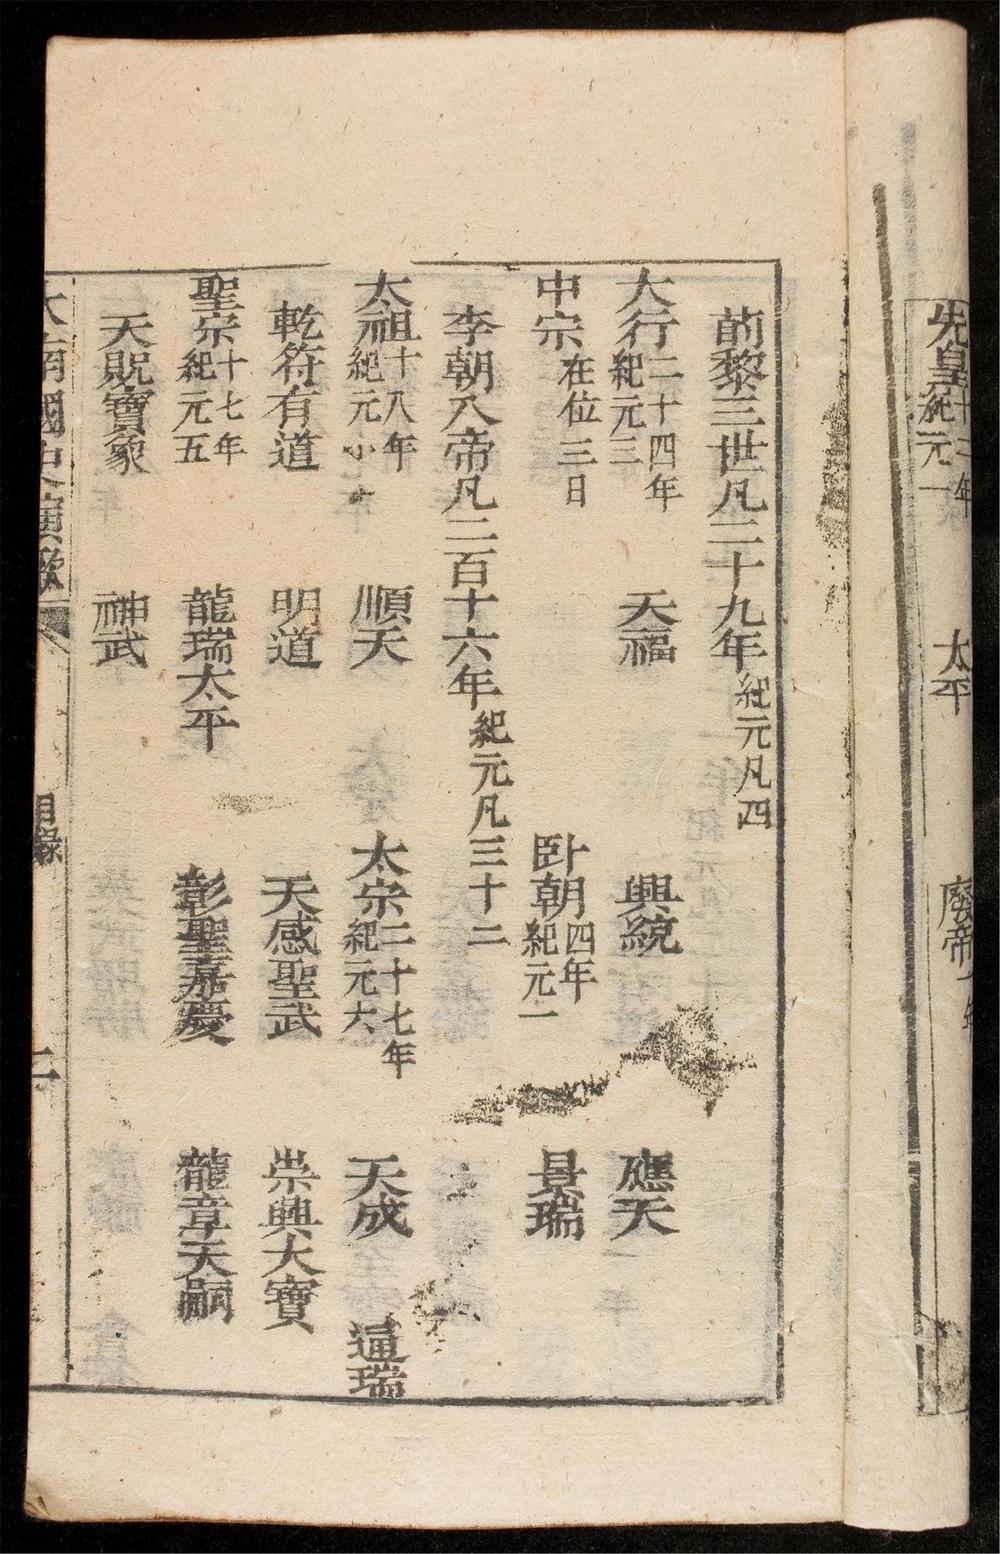 先皇 十二年 紀元一 太平 廢帝 一年
前黎三世凡二十九年 紀元凡四
大行 二十四年 紀元三 天福 興統 應天
中宗 在位三日 卧朝 四年 紀元一 景瑞
李朝八帝凡二百十六年 紀元凡三十二
太祖 十八年 紀元一 順天 太宗 二十七年 紀元六 天成 通瑞
乾符有道 明道 天感聖武 崇興大寶
聖宗 十七年 紀元五 龍瑞太平 彰聖嘉慶 龍章天嗣
天貺寶象 神武
大南國史演歌 目錄 二